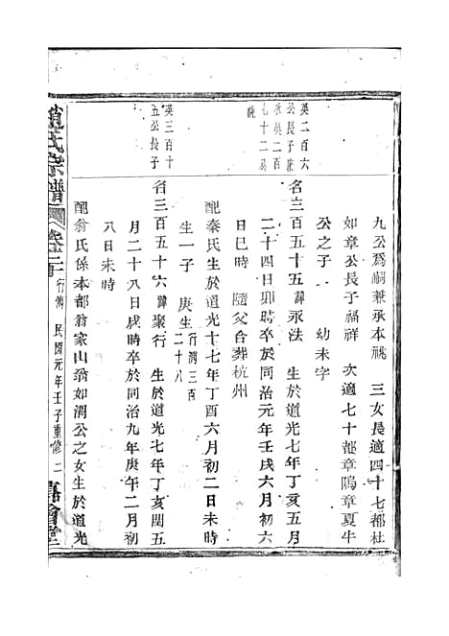 九公爲嗣兼承本祧　三女長適四十七都杜
如章公長子福祥　次適七十都章鳴章夏牛
公之子　幼未字
英二百六
公長子兼
承英二百
七十二易
祧
名三百五十五諱永法　生於道光七年丁亥五月
二十四日卯時卒於同治元年壬戌六月初六
日巳時　隨父合葬杭州
配秦氏生於道光十七年丁酉六月初二日未時
生一子　庚生行濟三百二十八
英三百十
五公長子
名三百五十六諱聚行　生於道光七年丁亥閏五
月二十八日戌時卒於同治九年庚午二月初
八日未時
配翁氏係本都翁家山翁如潤公之女生於道光
趙氏宗譜　卷二十　行傳　民國元年壬子重修　二　嘉會堂